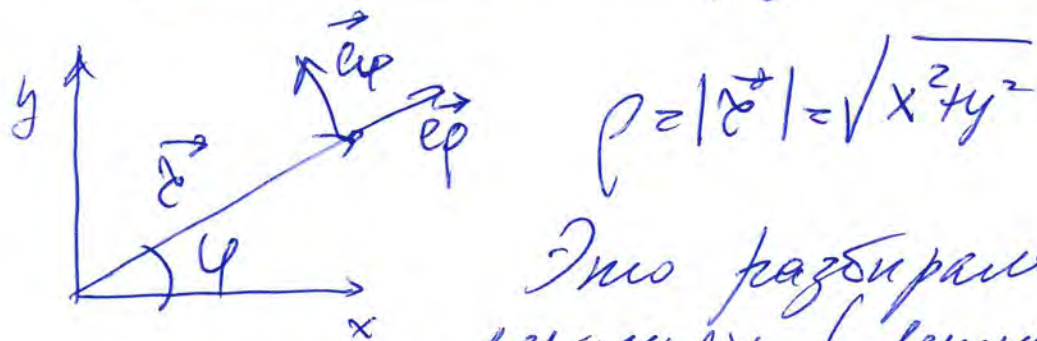 y
e⃗φ
e⃗ρ
r⃗
φ
x
ρ = |r⃗| = √x²+y²
Это разбирали